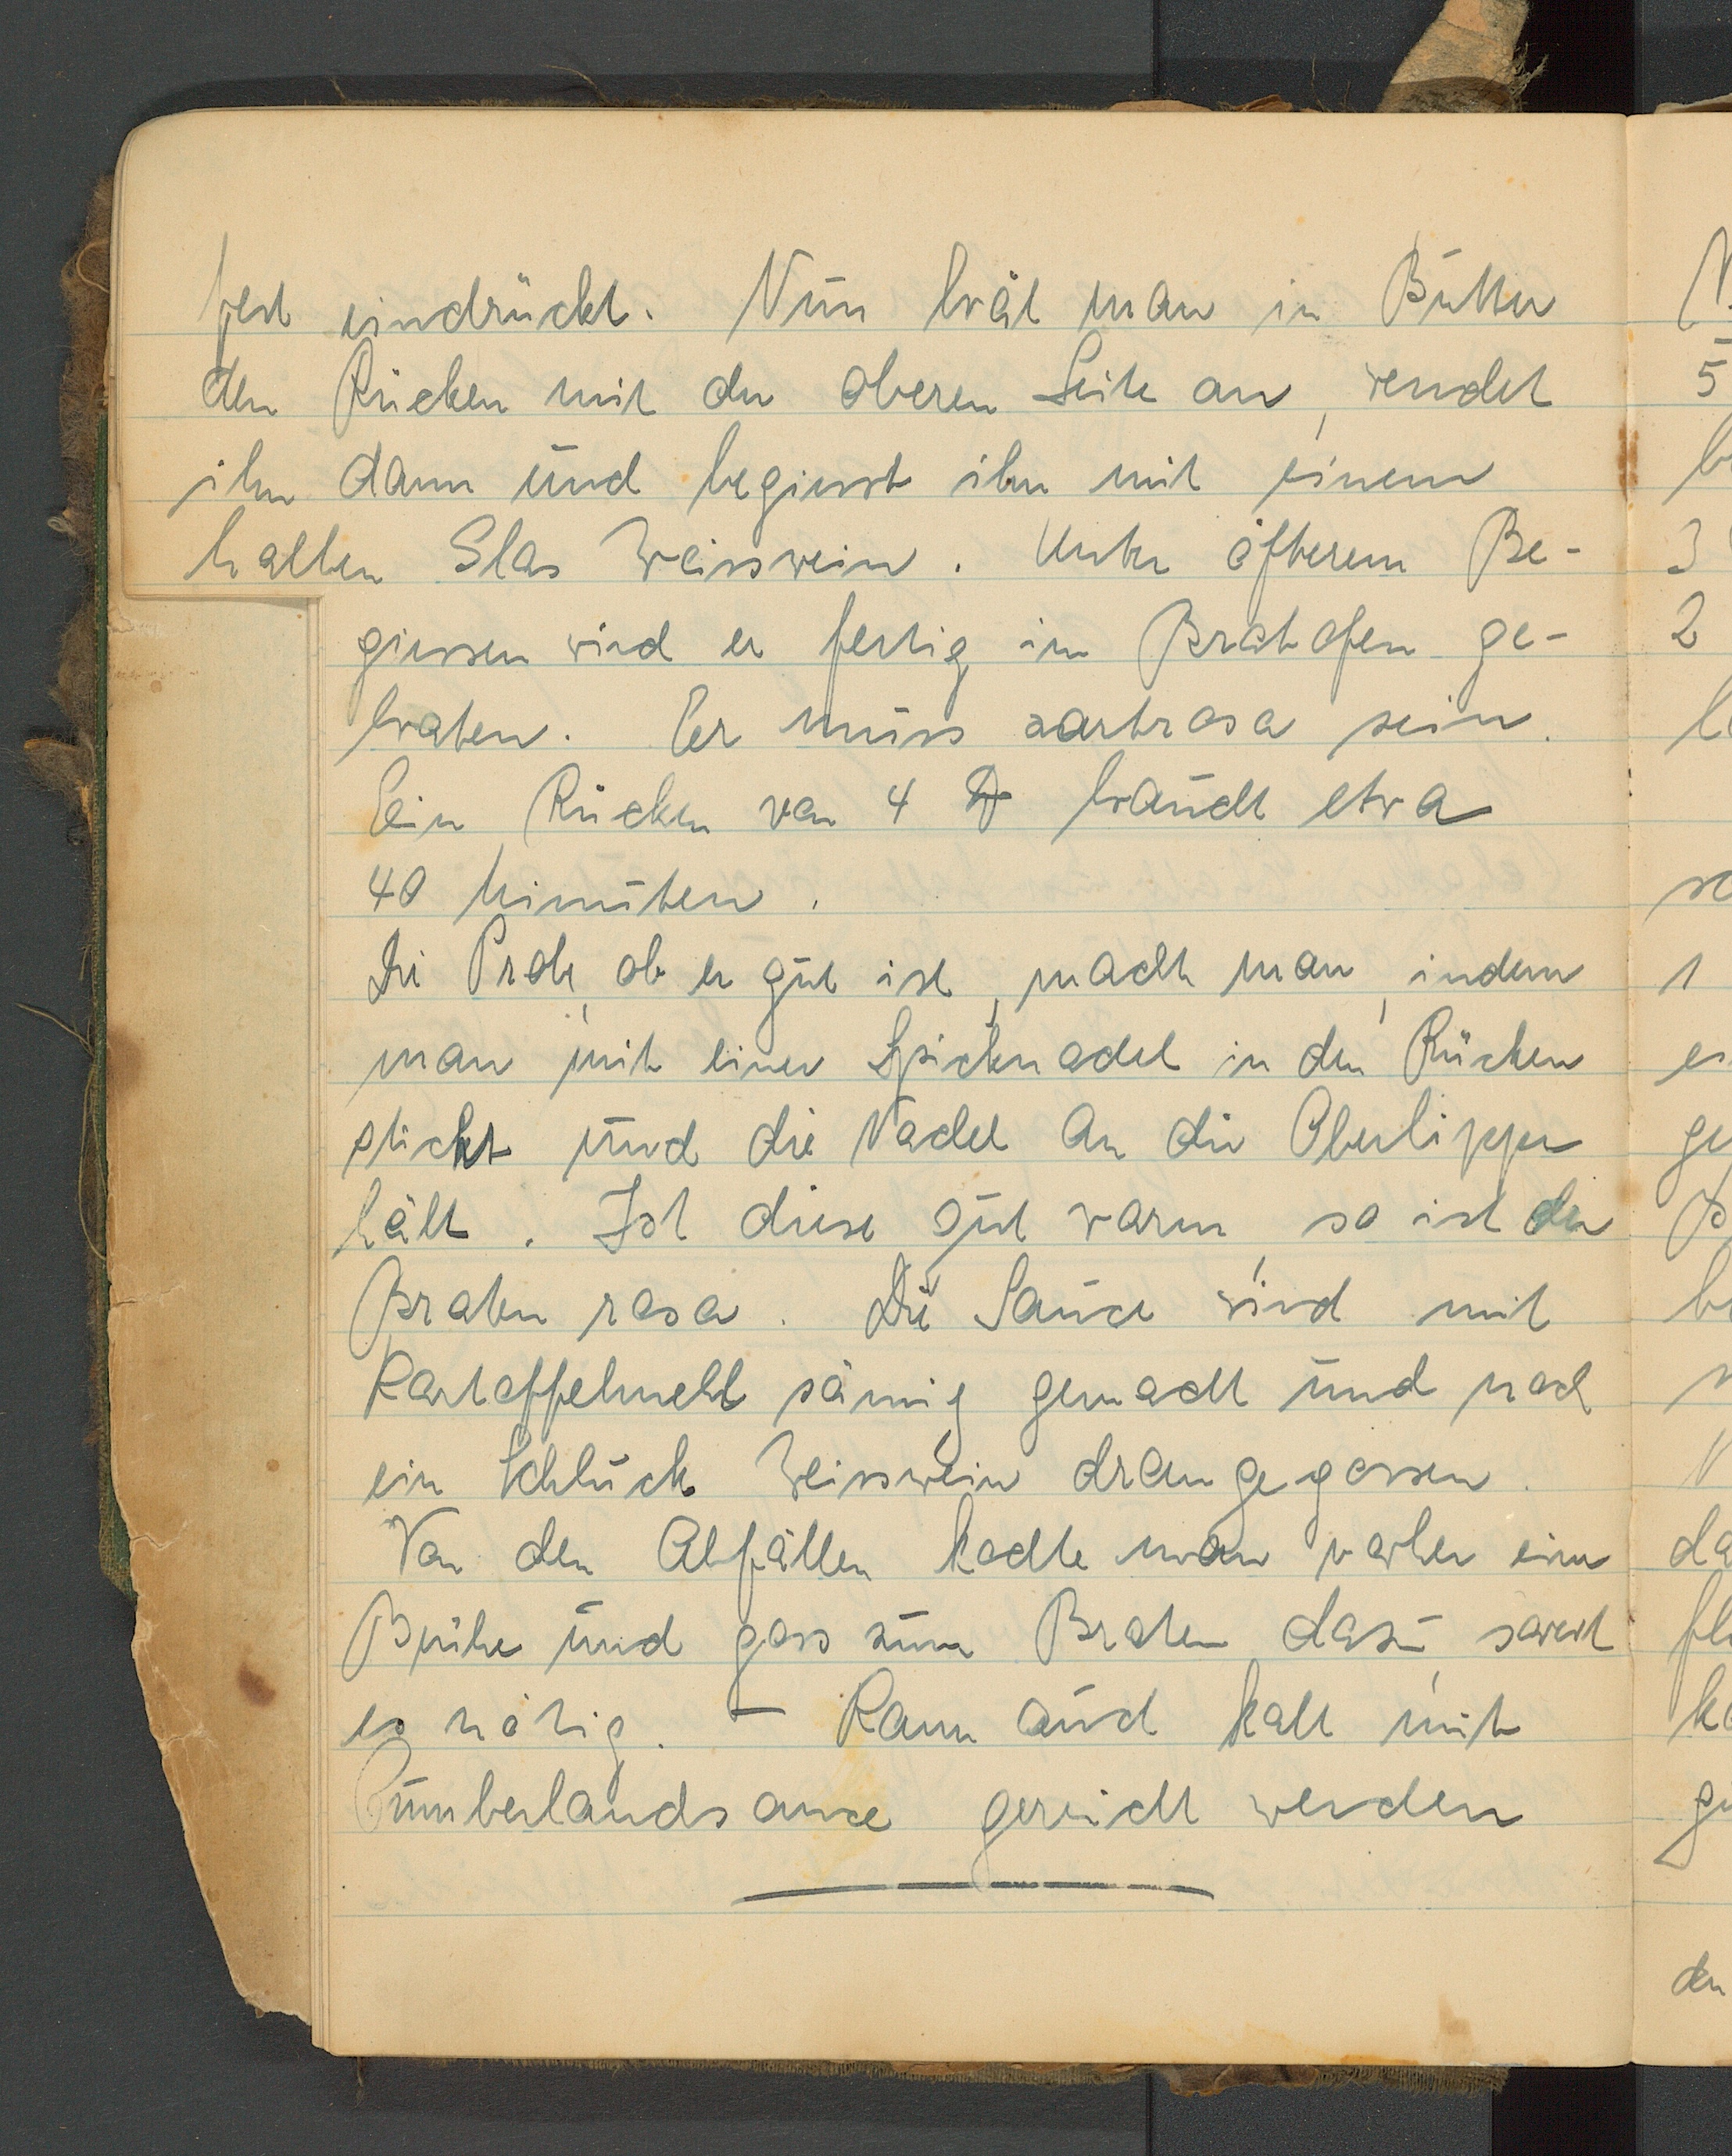 fest eindrückt. Nun brät man in Butter
den Rücken mit der oberen Seite an, wendet
ihn dann und begiesst ihn mit einem
halben Glas Weisswein. Unter öfterem Be-
giessen wird er fertig im Bratofen ge-
braten. Er muss zartrosa sein.
Ein Rücken von 4 ℔ braucht etwa
40 Minuten.
Die Probe, ob er gut ist, macht man, indem
man mit einer Spicknadel in den Rücken
sticht und die Nadel an die Oberlippe
hält. Ist diese gut warm, so ist der
Braten rosa. Die Sauce wird mit
Kartoffelmehl sämig gemacht und noch
ein Schluck Weisswein drangegossen.
Von den Abfällen kochte man vorher eine
Brühe und goss zum Braten dazu, soweit
es nötig. – Kann auch kalt mit
Cumberlandsauce gereicht werden
5
3
2
1